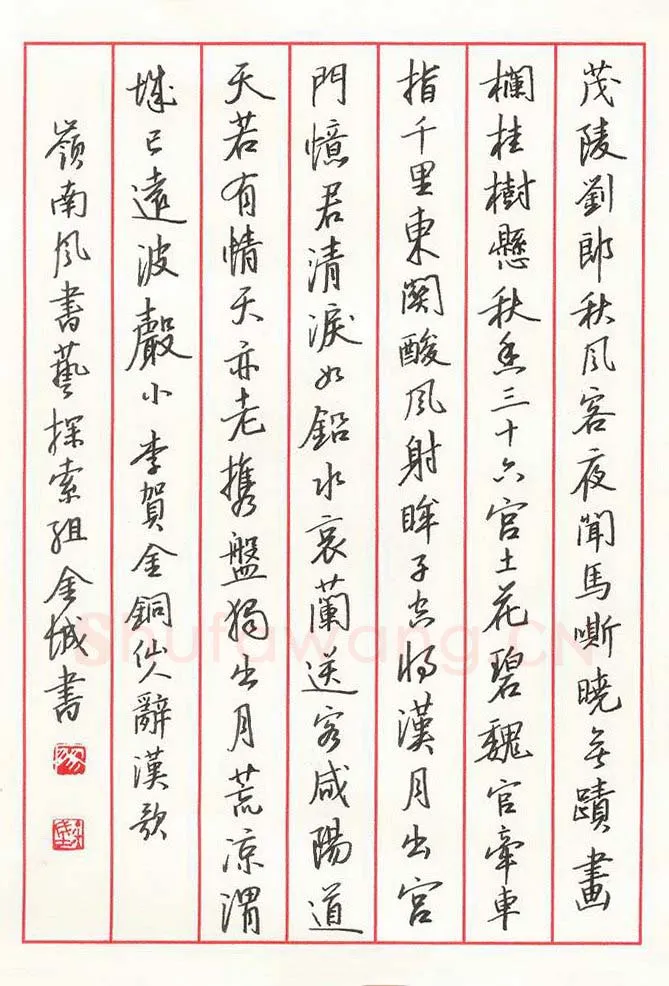 茂陵劉郎秋風客夜聞馬嘶曉無蹟畫
欄桂樹懸秋香三十六宮土花碧魏官牽車
指千里東關酸風射眸子空將漢月出宮
門憶君清淚如鉛水衰蘭送客咸陽道
天若有情天亦老攜盤獨出月荒涼渭
城已遠波聲小李賀金銅仙人辭漢歌
嶺南風書藝探索組金城書
Shufawang.CN